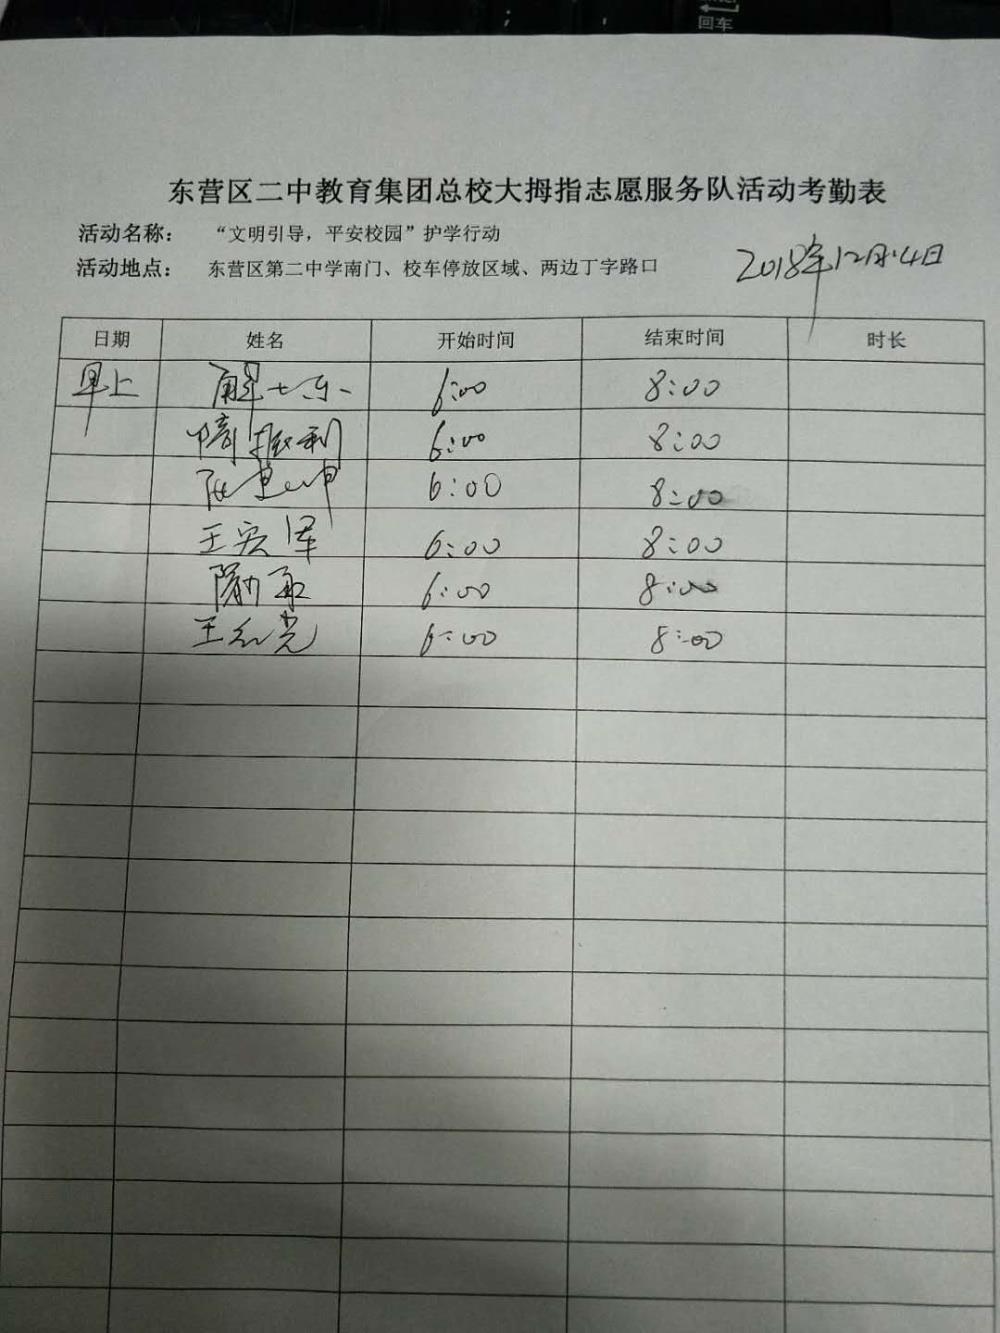 回车
东营区二中教育集团总校大拇指志愿服务队活动考勤表
活动名称： “文明引导，平安校园”护学行动
活动地点： 东营区第二中学南门、校车停放区域、两边丁字路口
2018年12月14日
日期 姓名 开始时间 结束时间 时长
早上 6:00 8:00
振利 6:00 8:00
6:00 8:00
王宪泽 6:00 8:00
6:00 8:00
王红党 6:00 8:00